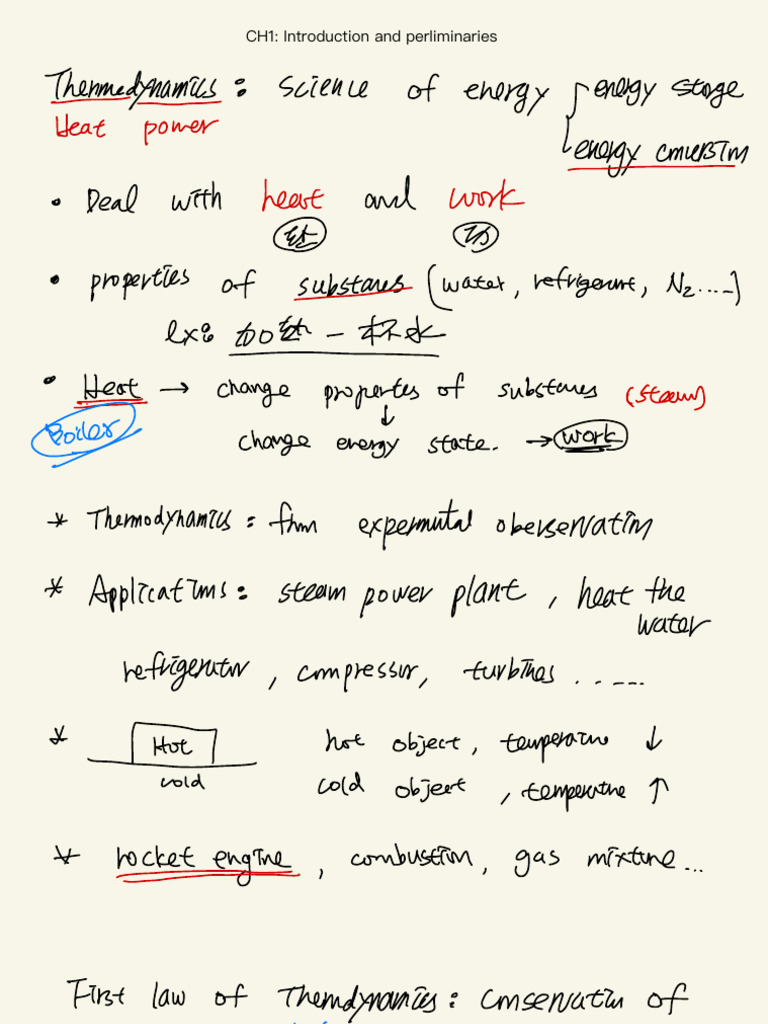 CH1: Introduction and perliminaries
Thermodynamics: science of energy energy stoge
Heat power
energy conversion
• Deal with heat and work
熱 功
• properties of substances (water, refrigerant, N₂....)
ex: 加熱一杯水
• Heat → change properties of substances (steam)
Boiler
↓
change energy state. → work
* Thermodynamics: from experimental oberservation
* Applications: steam power plant, heat the
water
refrigerator, compressor, turbines ......
* Hot hot object, temperature ↓
cold cold object, temperature ↑
* rocket engine, combustion, gas mixture...
First law of Thermodynamics: conservation of